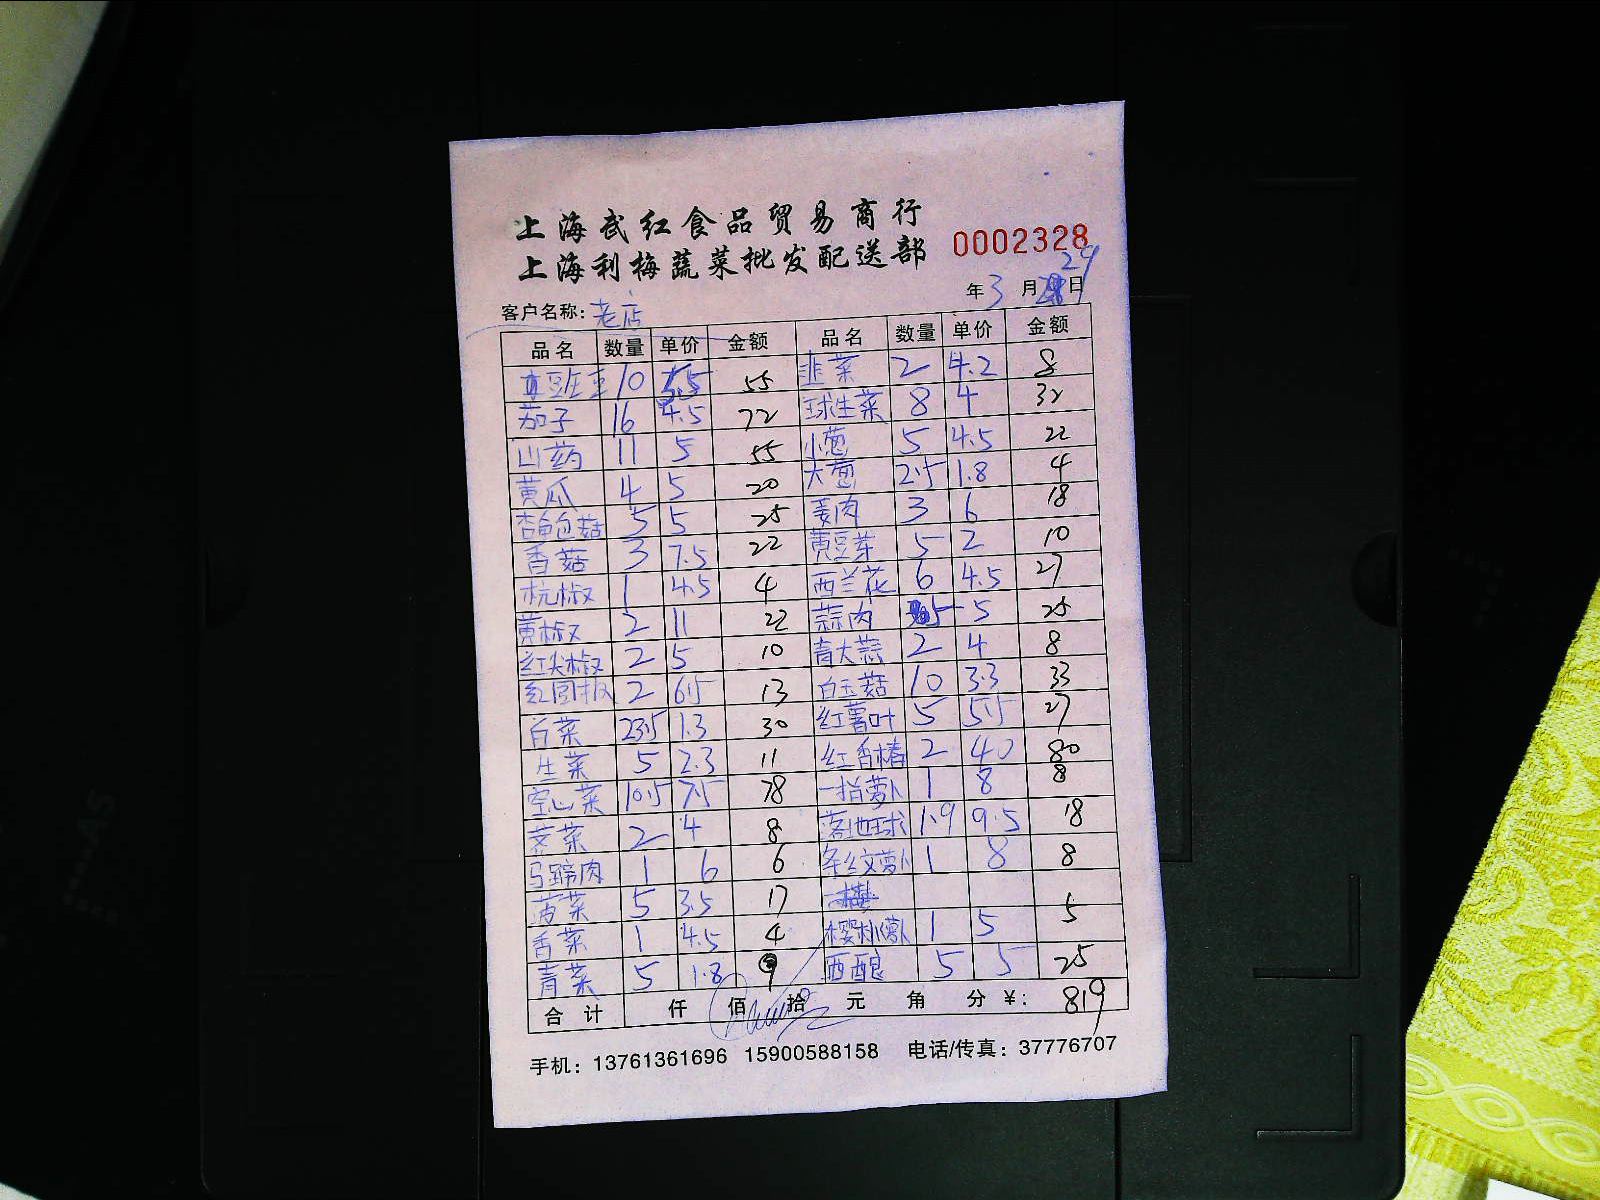 上海武红食品贸易商行
上海利梅蔬菜批发配送部
0002328
29
年3月日
客户名称：老店
品名 数量 单价 金额 品名 数量 单价 金额
豆 10 5.5 55 韭菜 2 4.2 8
茄子 16 4.5 72 球生菜 8 4 32
山药 11 5 55 小葱 5 4.5 22
黄瓜 4 5 20 大葱 2.5 1.8 4
杏鲍菇 5 5 25 姜肉 3 6 18
香菇 3 7.5 22 黄豆芽 5 2 10
杭椒 1 4.5 4 西兰花 6 4.5 27
黄椒 2 11 22 蒜肉 5 5 25
红尖椒 2 5 10 青大蒜 2 4 8
红圆椒 2 6.5 13 白玉菇 10 3.3 33
白菜 23.5 1.3 30 红薯叶 5 5.5 27
生菜 5 2.3 11 红香椿 2 40 80
空心菜 10.5 7.5 78 一指萝卜 1 8 8
荠菜 2 4 8 落地球 1.9 9.5 18
马蹄肉 1 6 6 条纹萝卜 1 8 8
菠菜 5 3.5 17
香菜 1 4.5 4 樱桃萝卜 1 5 5
青菜 5 1.8 9 西 5 5 25
合计 仟 佰 拾 元 角 分 ¥：819
手机：13761361696 15900588158 电话/传真：37776707